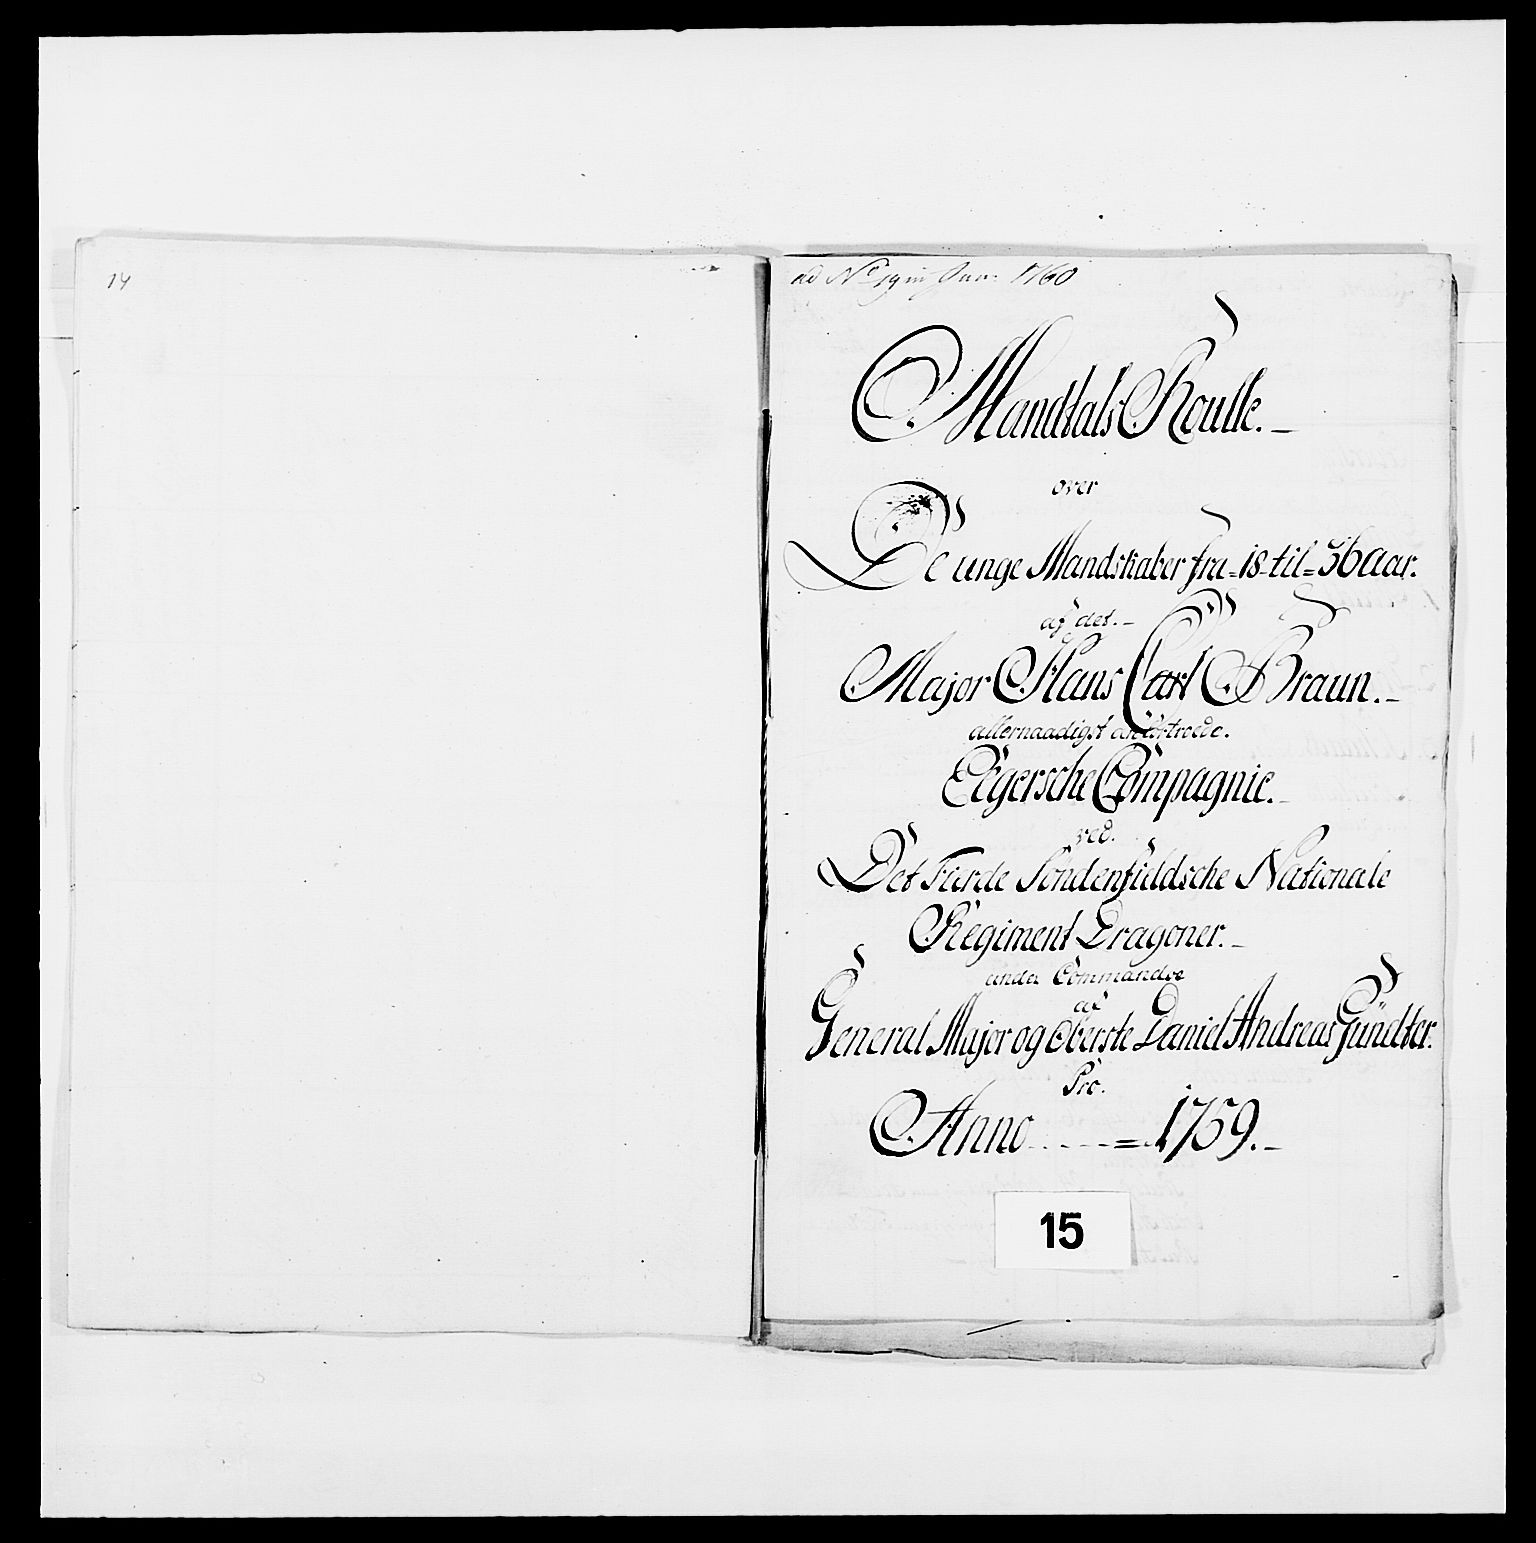 14
ad No 19 in Jan: 1760
Mandtals Roulle.
over
De unge Mandskaber fra=18=til=36 aar.
af det.
Major Hans Carl Braun.
allernaadigst anbetroede.
Eegersche Compagnie.
ved.
Det Fierde Söndenfieldsche Nationale
Regiment Dragoner.
under Commandoe
af
General Major og Oberste Daniel Andreas Gündter.
Pro.
Anno .....= 1759.
15